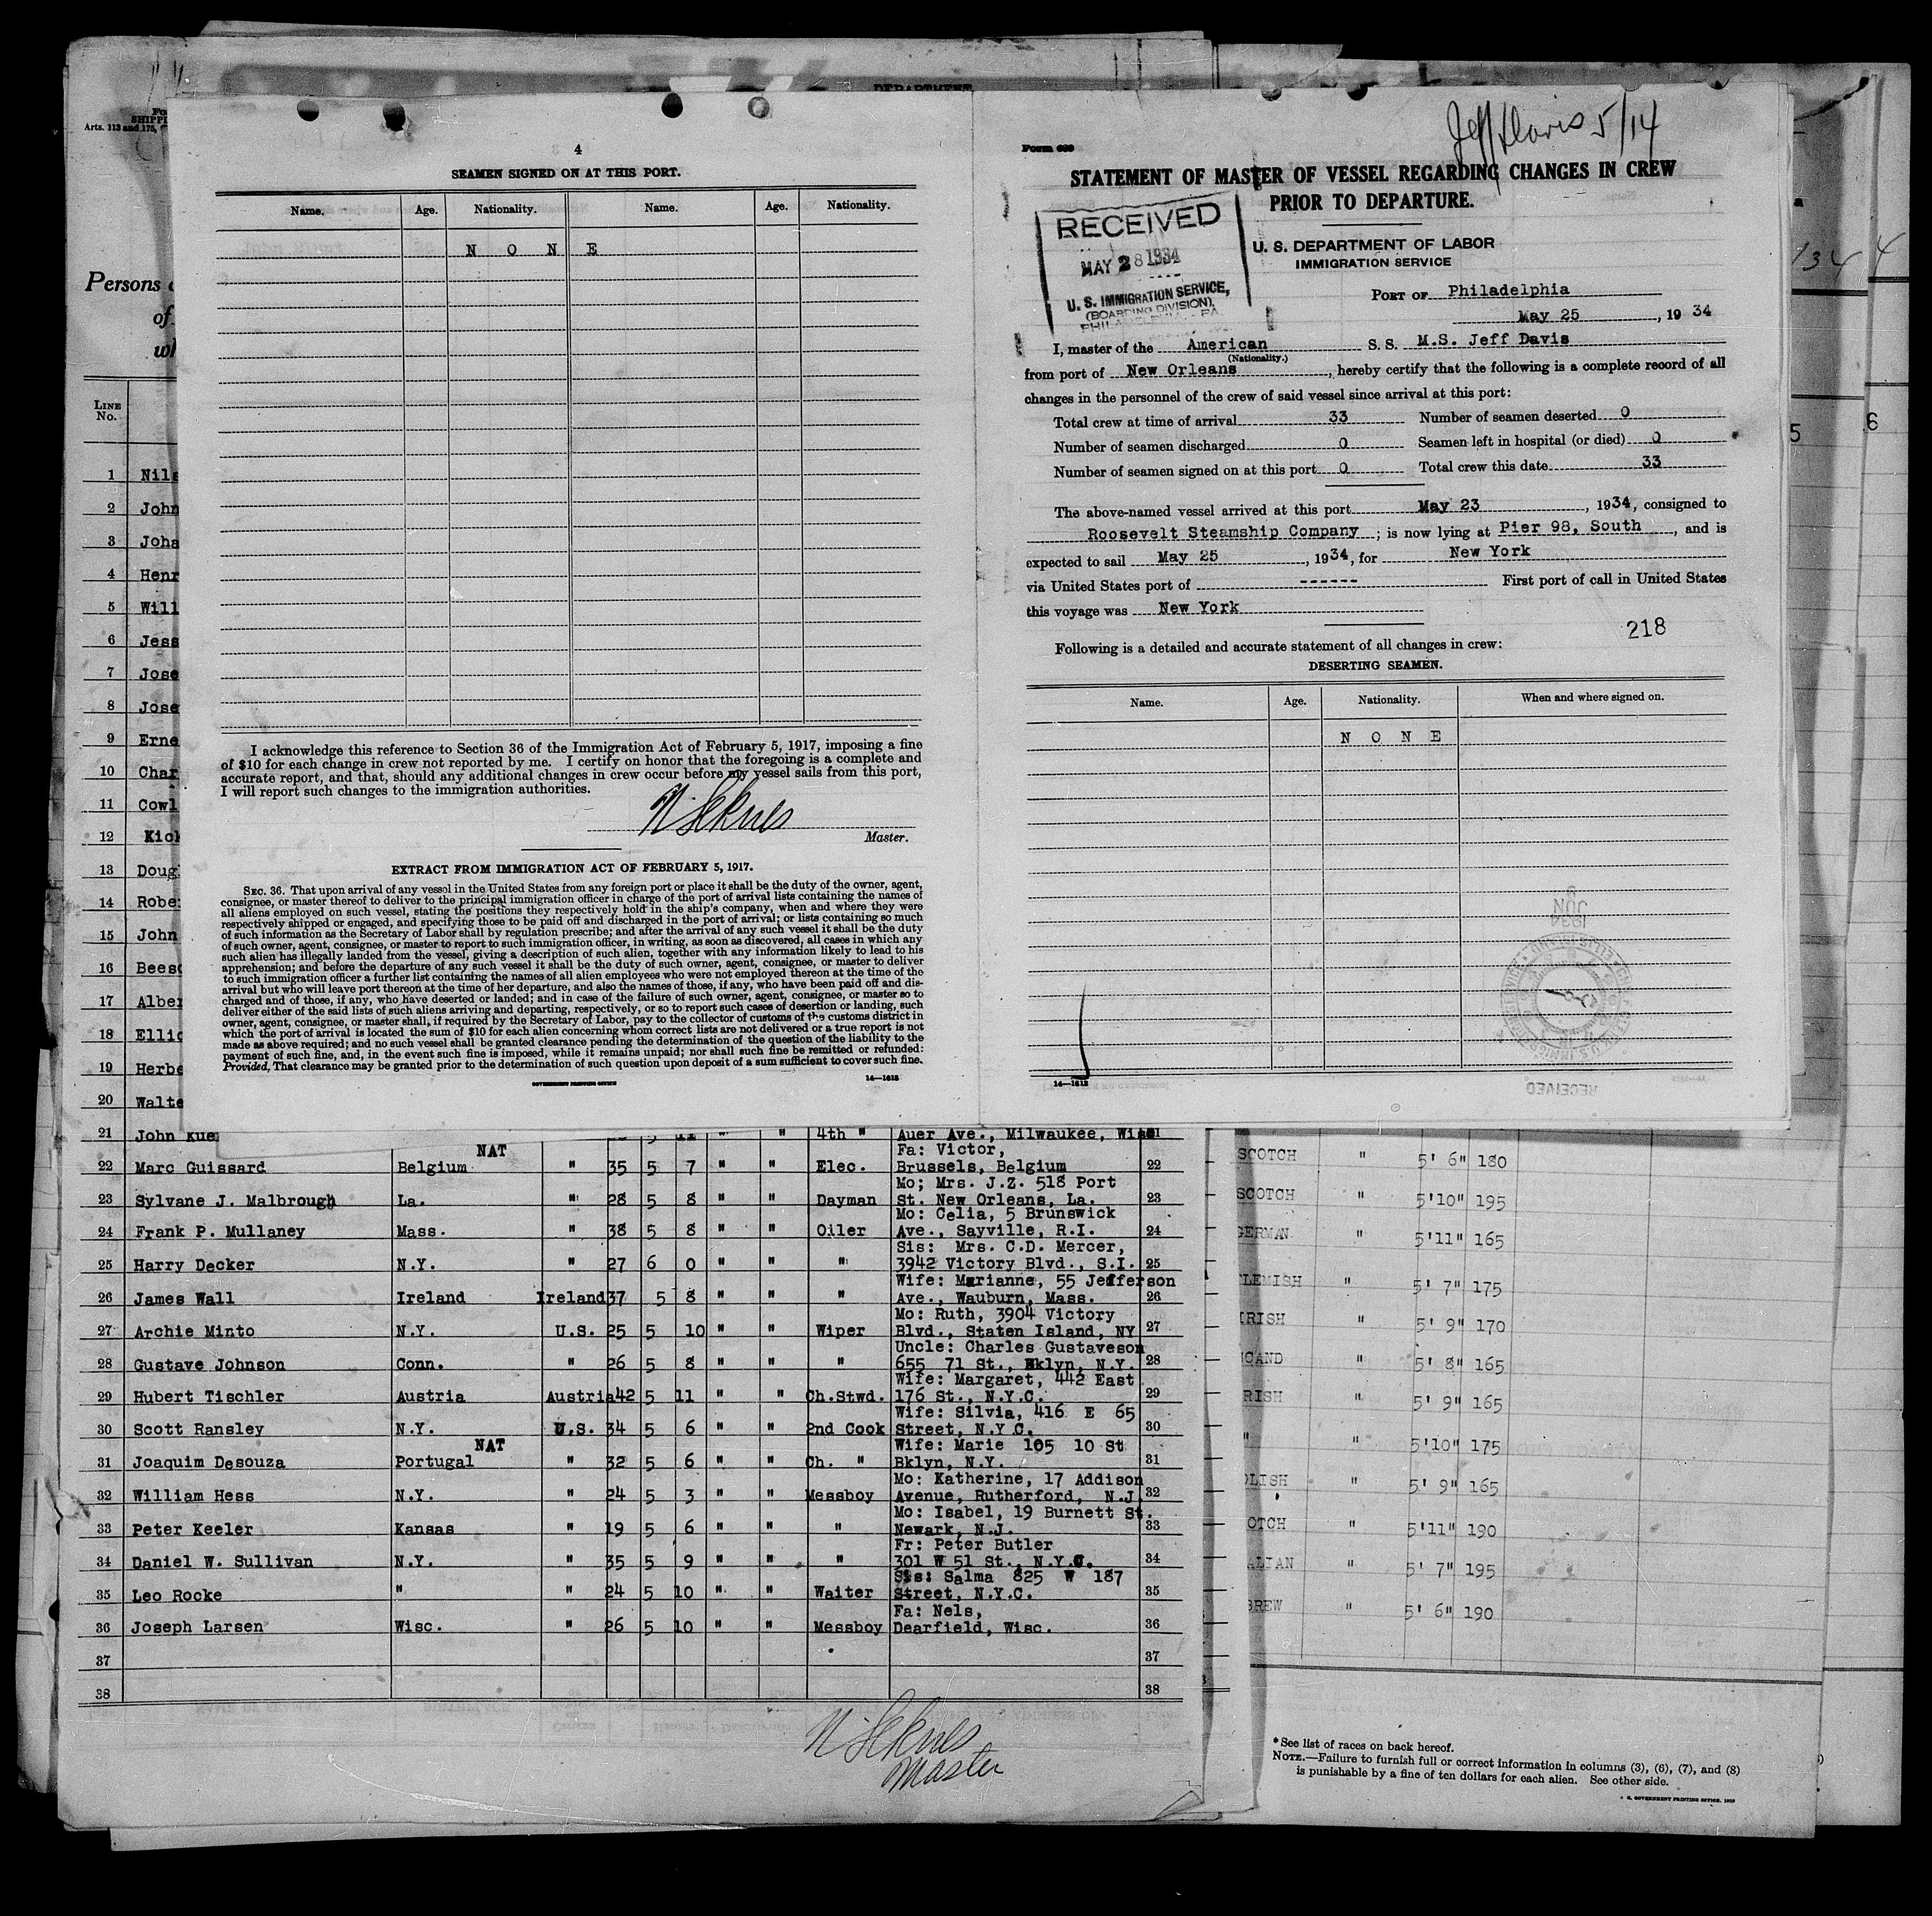 4
SEAMEN SIGNED ON AT THIS PORT.
Name. Age. Nationality. Name. Age. Nationality.
N O N E
I acknowledge this reference to Section 36 of the Immigration Act of February 5, 1917, imposing a fine
of $10 for each change in crew not reported by me. I certify on honor that the foregoing is a complete and
accurate report, and that, should any additional changes in crew occur before my vessel sails from this port,
I will report such changes to the immigration authorities.
Master.
EXTRACT FROM IMMIGRATION ACT OF FEBRUARY 5, 1917.
SEC. 36. That upon arrival of any vessel in the United States from any foreign port or place it shall be the duty of the owner, agent,
consignee, or master thereof to deliver to the principal immigration officer in charge of the port of arrival lists containing the names of
all aliens employed on such vessel, stating the positions they respectively hold in the ship's company, when and where they were
respectively shipped or engaged, and specifying those to be paid off and discharged in the port of arrival; or lists containing so much
of such information as the Secretary of Labor shall by regulation prescribe; and after the arrival of any such vessel it shall be the duty
of such owner, agent, consignee, or master to report to such immigration officer, in writing, as soon as discovered, all cases in which any
such alien has illegally landed from the vessel, giving a description of such alien, together with any information likely to lead to his
apprehension; and before the departure of any such vessel it shall be the duty of such owner, agent, consignee, or master to deliver
to such immigration officer a further list containing the names of all alien employees who were not employed thereon at the time of the
arrival but who will leave port thereon at the time of her departure, and also the names of those, if any, who have been paid off and dis-
charged and of those, if any, who have deserted or landed; and in case of the failure of such owner, agent, consignee, or master so to
deliver either of the said lists of such aliens arriving and departing, respectively, or so to report such cases of desertion or landing, such
owner, agent, consignee, or master shall, if required by the Secretary of Labor, pay to the collector of customs of the customs district in
which the port of arrival is located the sum of $10 for each alien concerning whom correct lists are not delivered or a true report is not
made as above required; and no such vessel shall be granted clearance pending the determination of the question of the liability to the
payment of such fine, and, in the event such fine is imposed, while it remains unpaid; nor shall such fine be remitted or refunded:
Provided, That clearance may be granted prior to the determination of such question upon deposit of a sum sufficient to cover such fine.
GOVERNMENT PRINTING OFFICE 14—1612
Jeff Davis 5/14
Form 689
STATEMENT OF MASTER OF VESSEL REGARDING CHANGES IN CREW
PRIOR TO DEPARTURE.
RECEIVED
MAY 28 1934
U. S. IMMIGRATION SERVICE,
(BOARDING DIVISION),
PHILADELPHIA - PA.
U. S. DEPARTMENT OF LABOR
IMMIGRATION SERVICE
PORT OF Philadelphia
May 25, 1934
I, master of the American S. S. M.S. Jeff Davis
(Nationality.)
from port of New Orleans, hereby certify that the following is a complete record of all
changes in the personnel of the crew of said vessel since arrival at this port:
Total crew at time of arrival 33 Number of seamen deserted 0
Number of seamen discharged 0 Seamen left in hospital (or died) 0
Number of seamen signed on at this port 0 Total crew this date 33
The above-named vessel arrived at this port May 23, 1934, consigned to
Roosevelt Steamship Company; is now lying at Pier 98, South, and is
expected to sail May 25, 1934, for New York
via United States port of ------ First port of call in United States
this voyage was New York
218
Following is a detailed and accurate statement of all changes in crew:
DESERTING SEAMEN.
Name. Age. Nationality. When and where signed on.
N O N E
1934
JUN
RECEIVED
14—1612
DEPARTMENT
Arts. 113 and 175,
Persons
of
LINE
No.
1 Nils
2 John
3 Joha
4 Henr
5 Will
6 Jess
7 Jose
8 Jose
9 Erne
10 Char
11 Cowl
12 Kick
13 Doug
14 Robe
15 John
16 Bees
17 Alber
18 Ellio
19 Herbe
20 Walte
21 John Kue 5 11 " " 4th " Auer Ave., Milwaukee, Wisc
22 Marc Guissard Belgium NAT " 35 5 7 " " Elec. Fa: Victor,
Brussels, Belgium 22
23 Sylvane J. Malbrough La. " 28 5 8 " " Dayman Mo; Mrs. J.Z. 518 Port
St. New Orleans, La. 23
24 Frank P. Mullaney Mass. " 38 5 8 " " Oiler Mo: Celia, 5 Brunswick
Ave., Sayville, R.I. 24
25 Harry Decker N.Y. " 27 6 0 " " " Sis: Mrs. C.D. Mercer,
3942 Victory Blvd., S.I. 25
26 James Wall Ireland Ireland 37 5 8 " " " Wife: Marianne, 55 Jefferson
Ave., Wauburn, Mass. 26
27 Archie Minto N.Y. U.S. 25 5 10 " " Wiper Mo: Ruth, 3904 Victory
Blvd., Staten Island, NY 27
28 Gustave Johnson Conn. " 26 5 8 " " " Uncle: Charles Gustaveson
655 71 St., Bklyn, N.Y. 28
29 Hubert Tischler Austria Austria 42 5 11 " " Ch.Stwd. Wife: Margaret, 442 East
176 St., N.Y.C. 29
30 Scott Ransley N.Y. U.S. 34 5 6 " " 2nd Cook Wife: Silvia, 416 E 65
Street, N.Y C. 30
31 Joaquim Desouza Portugal NAT " 32 5 6 " " Ch. " Wife: Marie 105 10 St
Bklyn, N.Y. 31
32 William Hess N.Y. " 24 5 3 " " Messboy Mo: Katherine, 17 Addison
Avenue, Rutherford, N.J. 32
33 Peter Keeler Kansas " 19 5 6 " " " Mo: Isabel, 19 Burnett St.
Newark, N.J. 33
34 Daniel W. Sullivan N.Y. " 35 5 9 " " " Fr: Peter Butler
301 W 51 St., N.Y.C. 34
35 Leo Rocke " " 24 5 10 " " Waiter Sis: Salma 825 W 187
Street, N.Y.C. 35
36 Joseph Larsen Wisc. " 26 5 10 " " Messboy Fa: Nels,
Dearfield, Wisc. 36
37 37
38 38
Master
SCOTCH " 5' 6" 180
SCOTCH " 5'10" 195
GERMAN " 5'11" 165
LEMISH " 5' 7" 175
IRISH " 5' 9" 170
CAND " 5' 8" 165
RISH " 5' 9" 165
" " 5'10" 175
OLISH " 5' 9" 165
OTCH " 5'11" 190
ALIAN " 5' 7" 195
BREW " 5' 6" 190
*See list of races on back hereof.
NOTE.—Failure to furnish full or correct information in columns (3), (6), (7), and (8)
is punishable by a fine of ten dollars for each alien. See other side.
GOVERNMENT PRINTING OFFICE. 1929